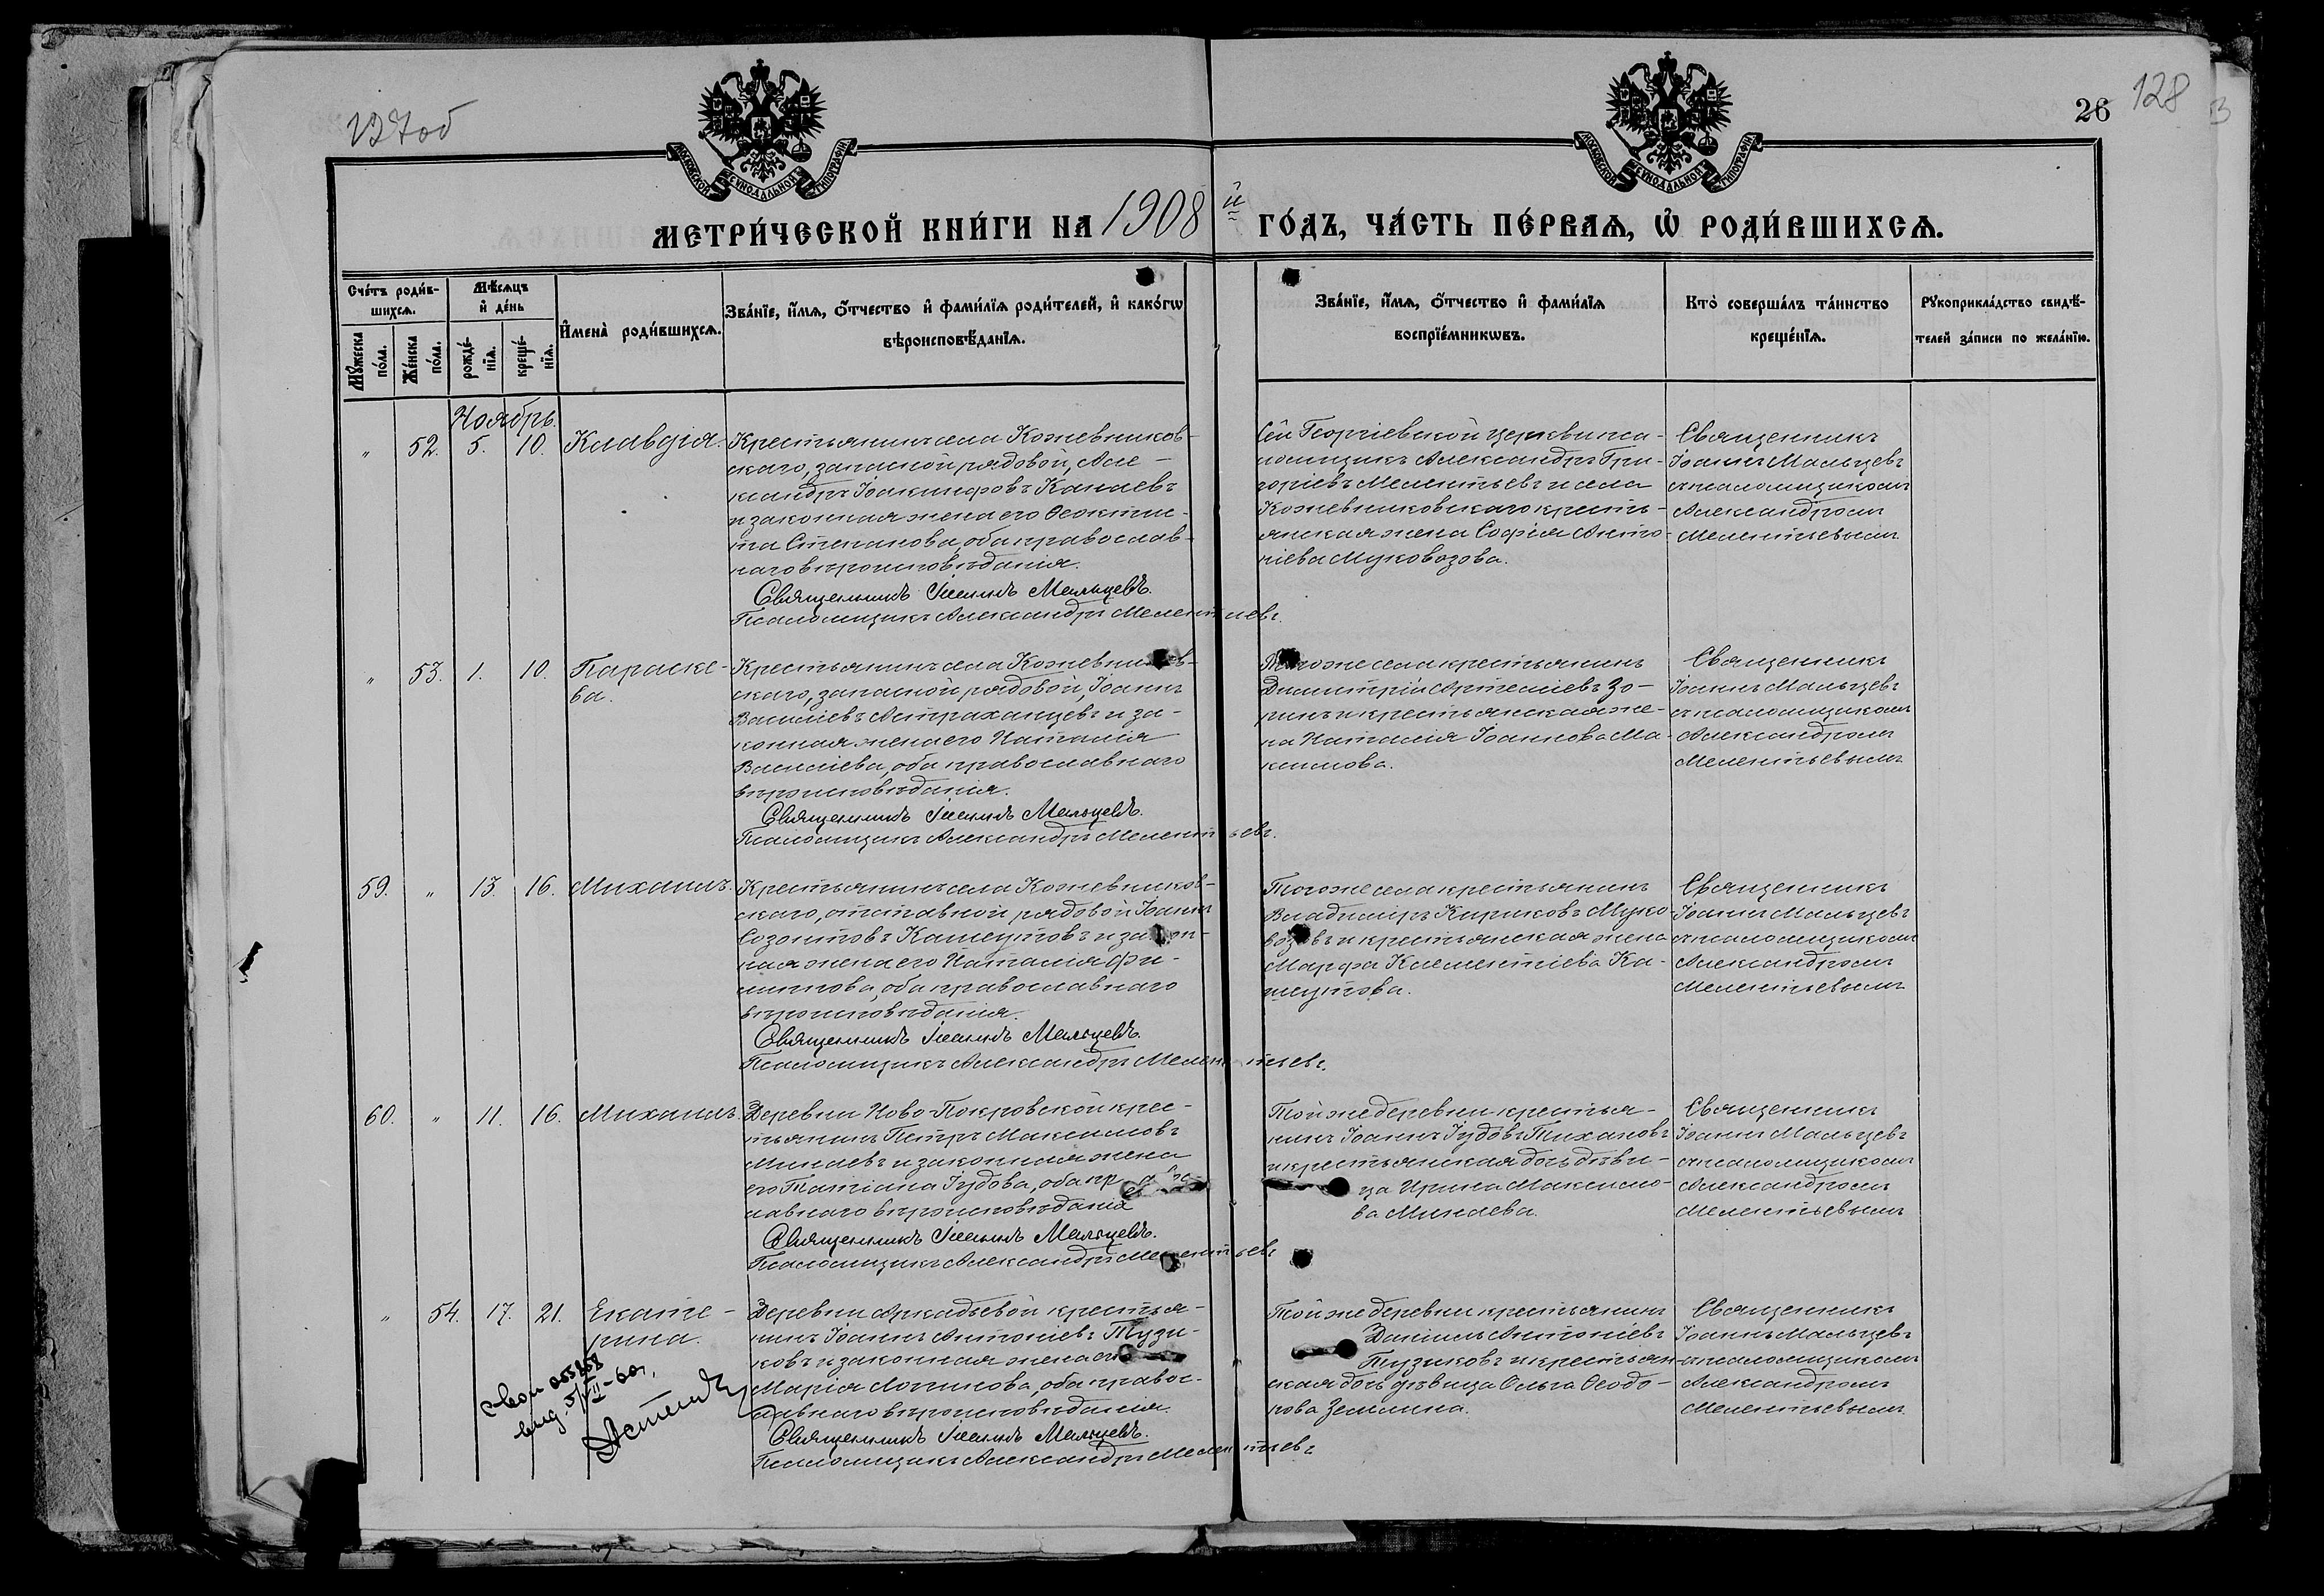 127об
26
128
МОСКОВСКОЙ СѴНОДАЛЬНОЙ ТИПОГРАФІИ
МОСКОВСКОЙ СѴНОДАЛЬНОЙ ТИПОГРАФІИ
МЕТРИ́ЧЕСКОЙ КНИ́ГИ НА 1908 й ГО́ДЪ, ЧА́СТЬ ПЕ́РВАѦ, Ѡ҆ РОДИ́ВШИХСѦ.
Сче́тъ роди́в-
шихсѧ.
Мꙋ́жеска по́ла.
Же́нска по́ла.
Мѣ́сѧцъ
и҆ де́нь
рожде́-
нїѧ.
креще́-
нїѧ.
И҆мена̀ роди́вшихсѧ.
Зва́нїе, и҆́мѧ, ѻ҆́тчество и҆ фами́лїѧ роди́телей, и҆ како́гѡ
вѣроисповѣ́данїѧ.
Зва́нїе, и҆́мѧ, ѻ҆́тчество и҆ фами́лїѧ
воспрїе́мникѡвъ.
Кто̀ соверша́лъ та́инство
креще́нїѧ.
Рꙋкоприкла́дство свидѣ́-
телей за́писи по жела́нїю.
Ноябрь.
" 52. 5. 10. Клавдія.
Крестьянинъ села Кожевников-
скаго, запасной рядовой, Але-
ксандръ Іоакинфовъ Канаевъ
и законная жена его Ѳеокти-
ста Степанова, оба православ-
наго вѣроисповѣданія.
Священникъ Іоаннъ Мальцевъ.
Псаломщикъ Александръ Мелентьевъ.
Сей Георгіевской церкви пса-
ломщикъ Александръ Гри-
горіевъ Мелентьевъ и села
Кожевниковскаго кресть-
янская жена Софія Анто-
ніева Муковозова.
Священникъ
Іоаннъ Мальцевъ
съ псаломщикомъ
Александромъ
Мелентьевымъ
" 53. 1. 10. Параске-
ва.
Крестьянинъ села Кожевников-
скаго, запасной рядовой, Іоаннъ
Василіевъ Астраханцевъ и за-
конная жена его Наталія
Василіева, оба православнаго
вѣроисповѣданія.
Священникъ Іоаннъ Мальцевъ.
Псаломщикъ Александръ Мелентьевъ.
Того же села крестьянинъ
Димитрій Артеміевъ Зо-
ринъ и крестьянская же-
на Наталія Іоаннова Ма-
ксимова.
Священникъ
Іоаннъ Мальцевъ
съ псаломщикомъ
Александромъ
Мелентьевымъ
59. " 13. 16. Михаилъ.
Крестьянинъ села Кожевников-
скаго, отставной рядовой Іоаннъ
Созонтовъ Кашеутовъ и закон-
ная жена его Наталія Фи-
липпова, оба православнаго
вѣроисповѣданія.
Священникъ Іоаннъ Мальцевъ.
Псаломщикъ Александръ Мелентьевъ.
Того же села крестьянинъ
Владиміръ Кириковъ Муко-
возовъ и крестьянская жена
Марфа Клементіева Ка-
шеутова.
Священникъ
Іоаннъ Мальцевъ
съ псаломщикомъ
Александромъ
Мелентьевымъ
60. " 11. 16. Михаилъ.
Деревни Ново-Покровской крес-
тьянинъ Петръ Максимовъ
Минаевъ и законная жена
его Татіана Іудова, оба правос-
лавнаго вѣроисповѣданія
Священникъ Іоаннъ Мальцевъ.
Псаломщикъ Александръ Мелентьевъ
Той же деревни крестья-
нинъ Іоаннъ Іудовъ Тихановъ
и крестьянская дочь дѣви-
ца Ирина Максимо-
ва Минаева.
Священникъ
Іоаннъ Мальцевъ
съ псаломщикомъ
Александромъ
Мелентьевымъ
" 54. 17. 21. Екате-
рина.
Деревни Аркадьевой крестья-
нинъ Іоаннъ Антоніевъ Тузи-
ковъ и законная жена его
Марія Логинова, оба правос-
лавнаго вѣроисповѣданія.
Священникъ Іоаннъ Мальцевъ.
Псаломщикъ Александръ Мелентьевъ
Той же деревни крестьянинъ
Даніилъ Антоніевъ
Тузиковъ и крестьян-
ская дочь дѣвица Ольга Ѳеодо-
рова Землина.
Священникъ
Іоаннъ Мальцевъ
съ псаломщикомъ
Александромъ
Мелентьевымъ.